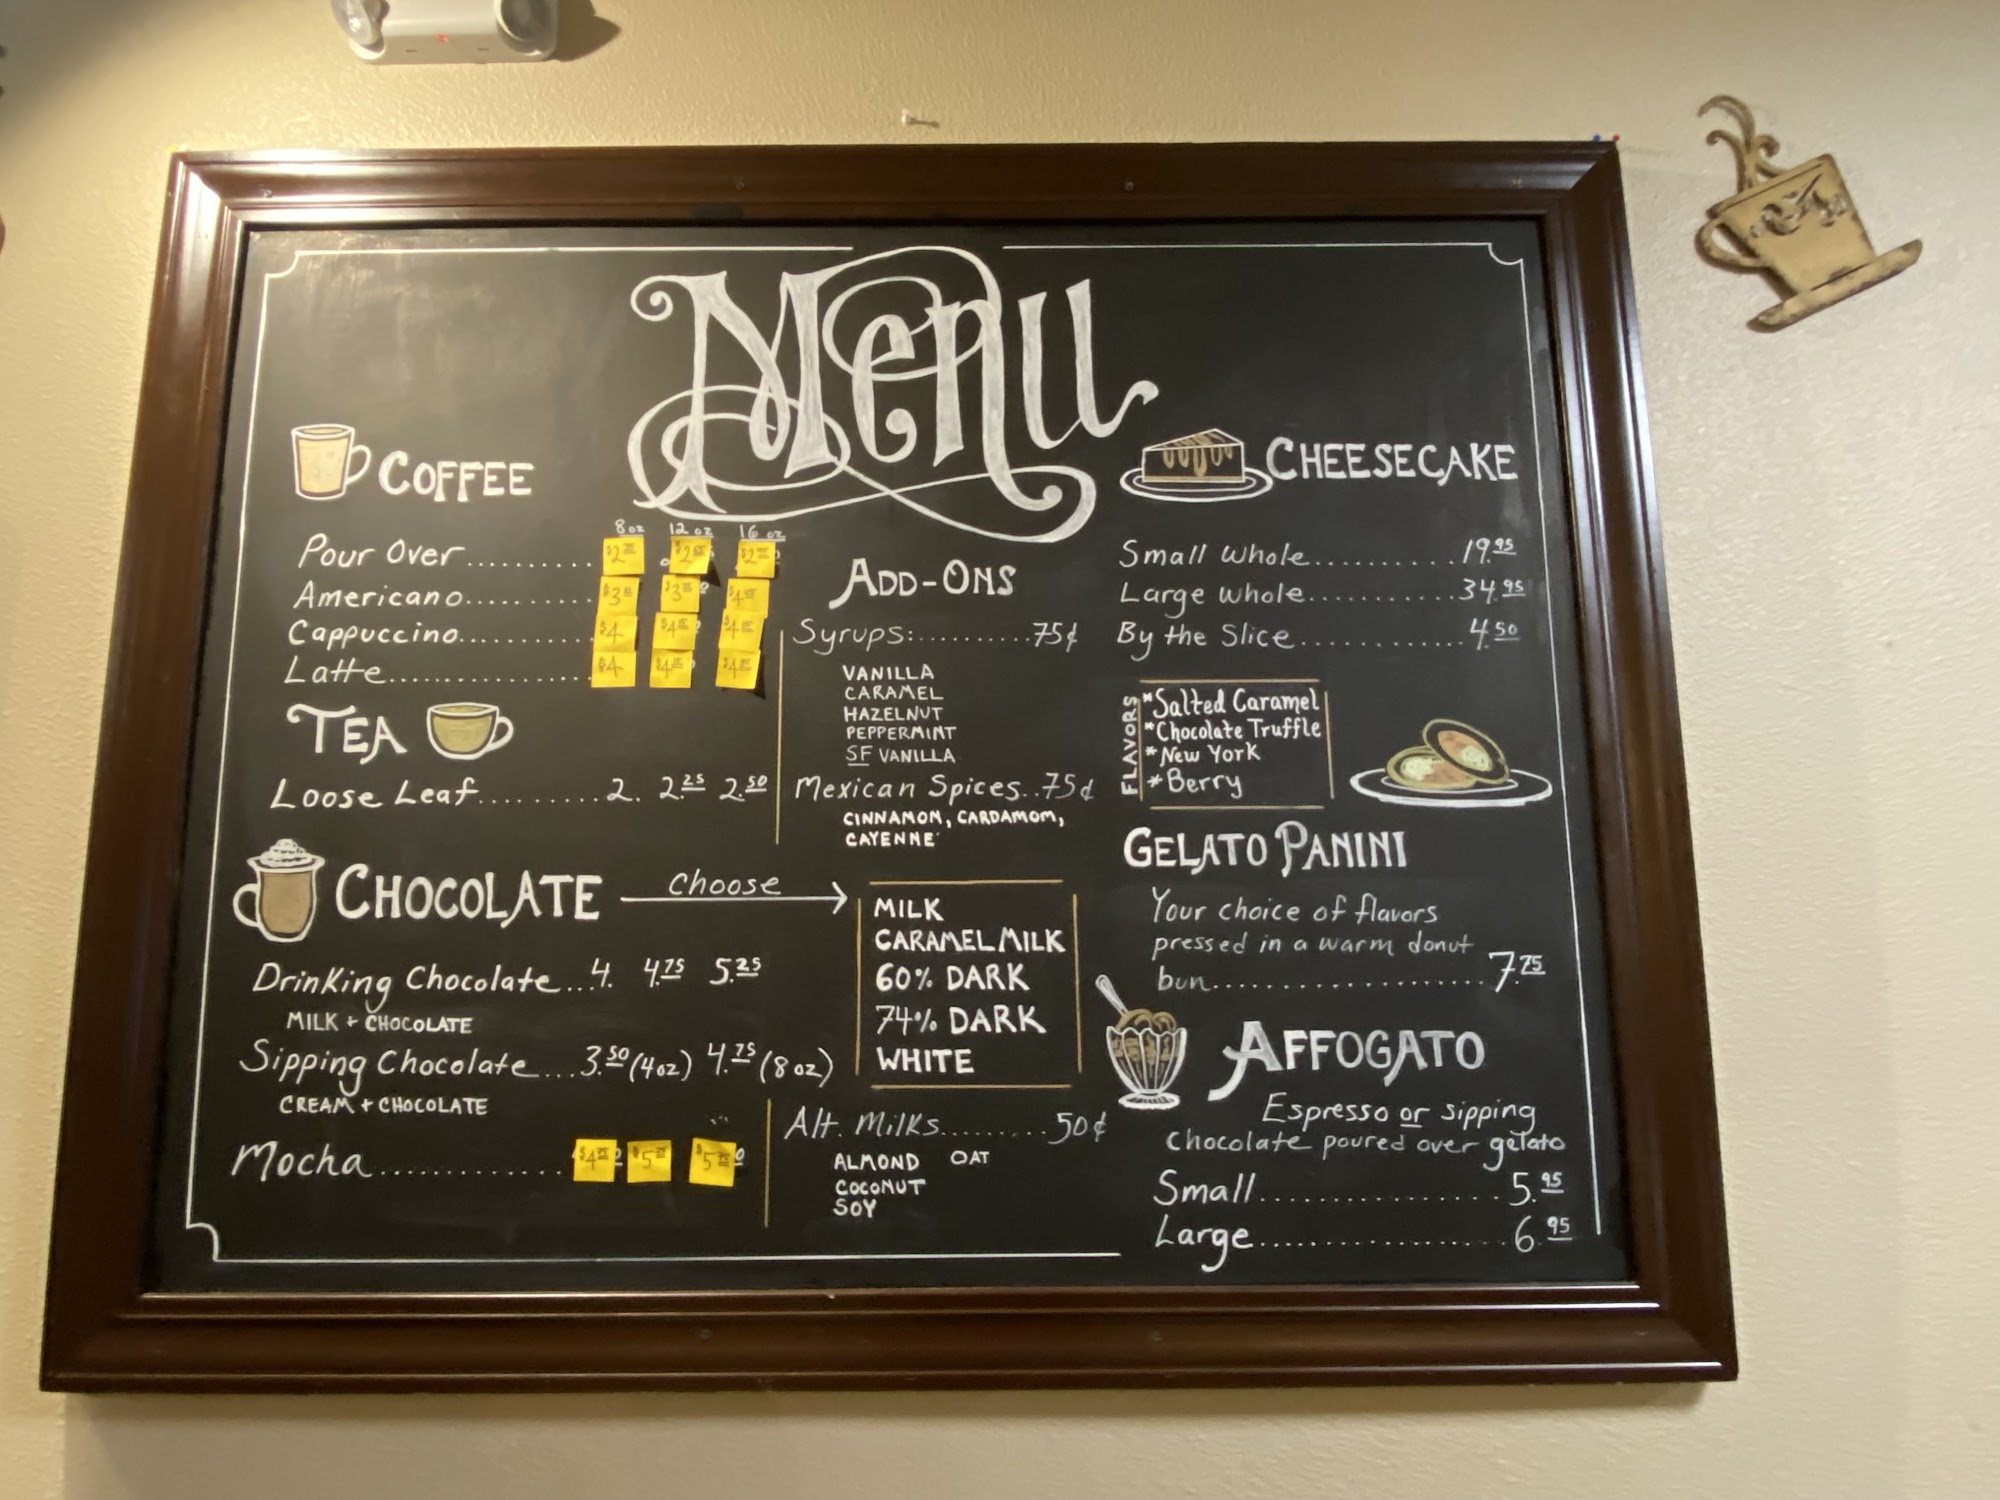 Menu
COFFEE
8 oz 12 oz 16 oz
Pour Over.......... $2 $2 $2
Americano.......... $3 $3 $4
Cappuccino.......... $4 $4 $4
Latte.......... $4 $4 $4
TEA
Loose Leaf......... 2. 2.25 2.50
CHOCOLATE choose
Drinking Chocolate...4. 4.75 5.25
MILK + CHOCOLATE
Sipping Chocolate...3.50 (4oz) 4.75 (8oz)
CREAM + CHOCOLATE
Mocha.......... $4 $5 $5
ADD-ONS
Syrups:..........75¢
VANILLA
CARAMEL
HAZELNUT
PEPPERMINT
SF VANILLA
Mexican Spices..75¢
CINNAMON, CARDAMOM,
CAYENNE
MILK
CARAMEL MILK
60% DARK
74% DARK
WHITE
Alt. Milks.........50¢
ALMOND OAT
COCONUT
SOY
CHEESECAKE
Small whole..........19.95
Large whole..........34.95
By the Slice..........4.50
FLAVORS
*Salted Caramel
*Chocolate Truffle
*New York
*Berry
GELATO PANINI
Your choice of flavors
pressed in a warm donut
bun....................7.75
AFFOGATO
Espresso or sipping
chocolate poured over gelato
Small.................5.95
Large.................6.95